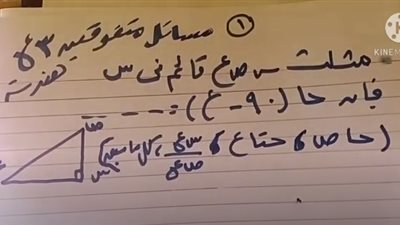 ① مسائل متفوقين ٣ع
هندسة
مثلث س ص ع قائم فى س
فإن حا (٩٠ - ع) = ----
(حا ص ، حتا ع ، س ع / ص ع ، كل ما سبق)
ص
س
ع
KINEM